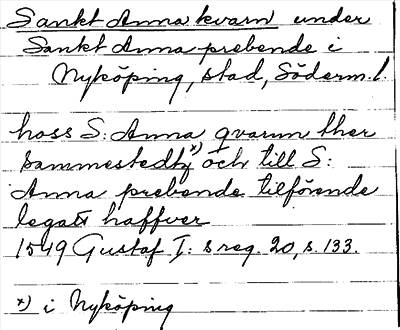 Sankt Anna kvarn under
Sankt Anna prebende i
Nyköping, stad, Söderm. l.
hoss S: Anna qvarnn ther
sammestedtz *) och till S:
Anna prebende tilförende
legatt haffver
1549 Gustaf I: s reg. 20, s. 133.
*) i Nyköping